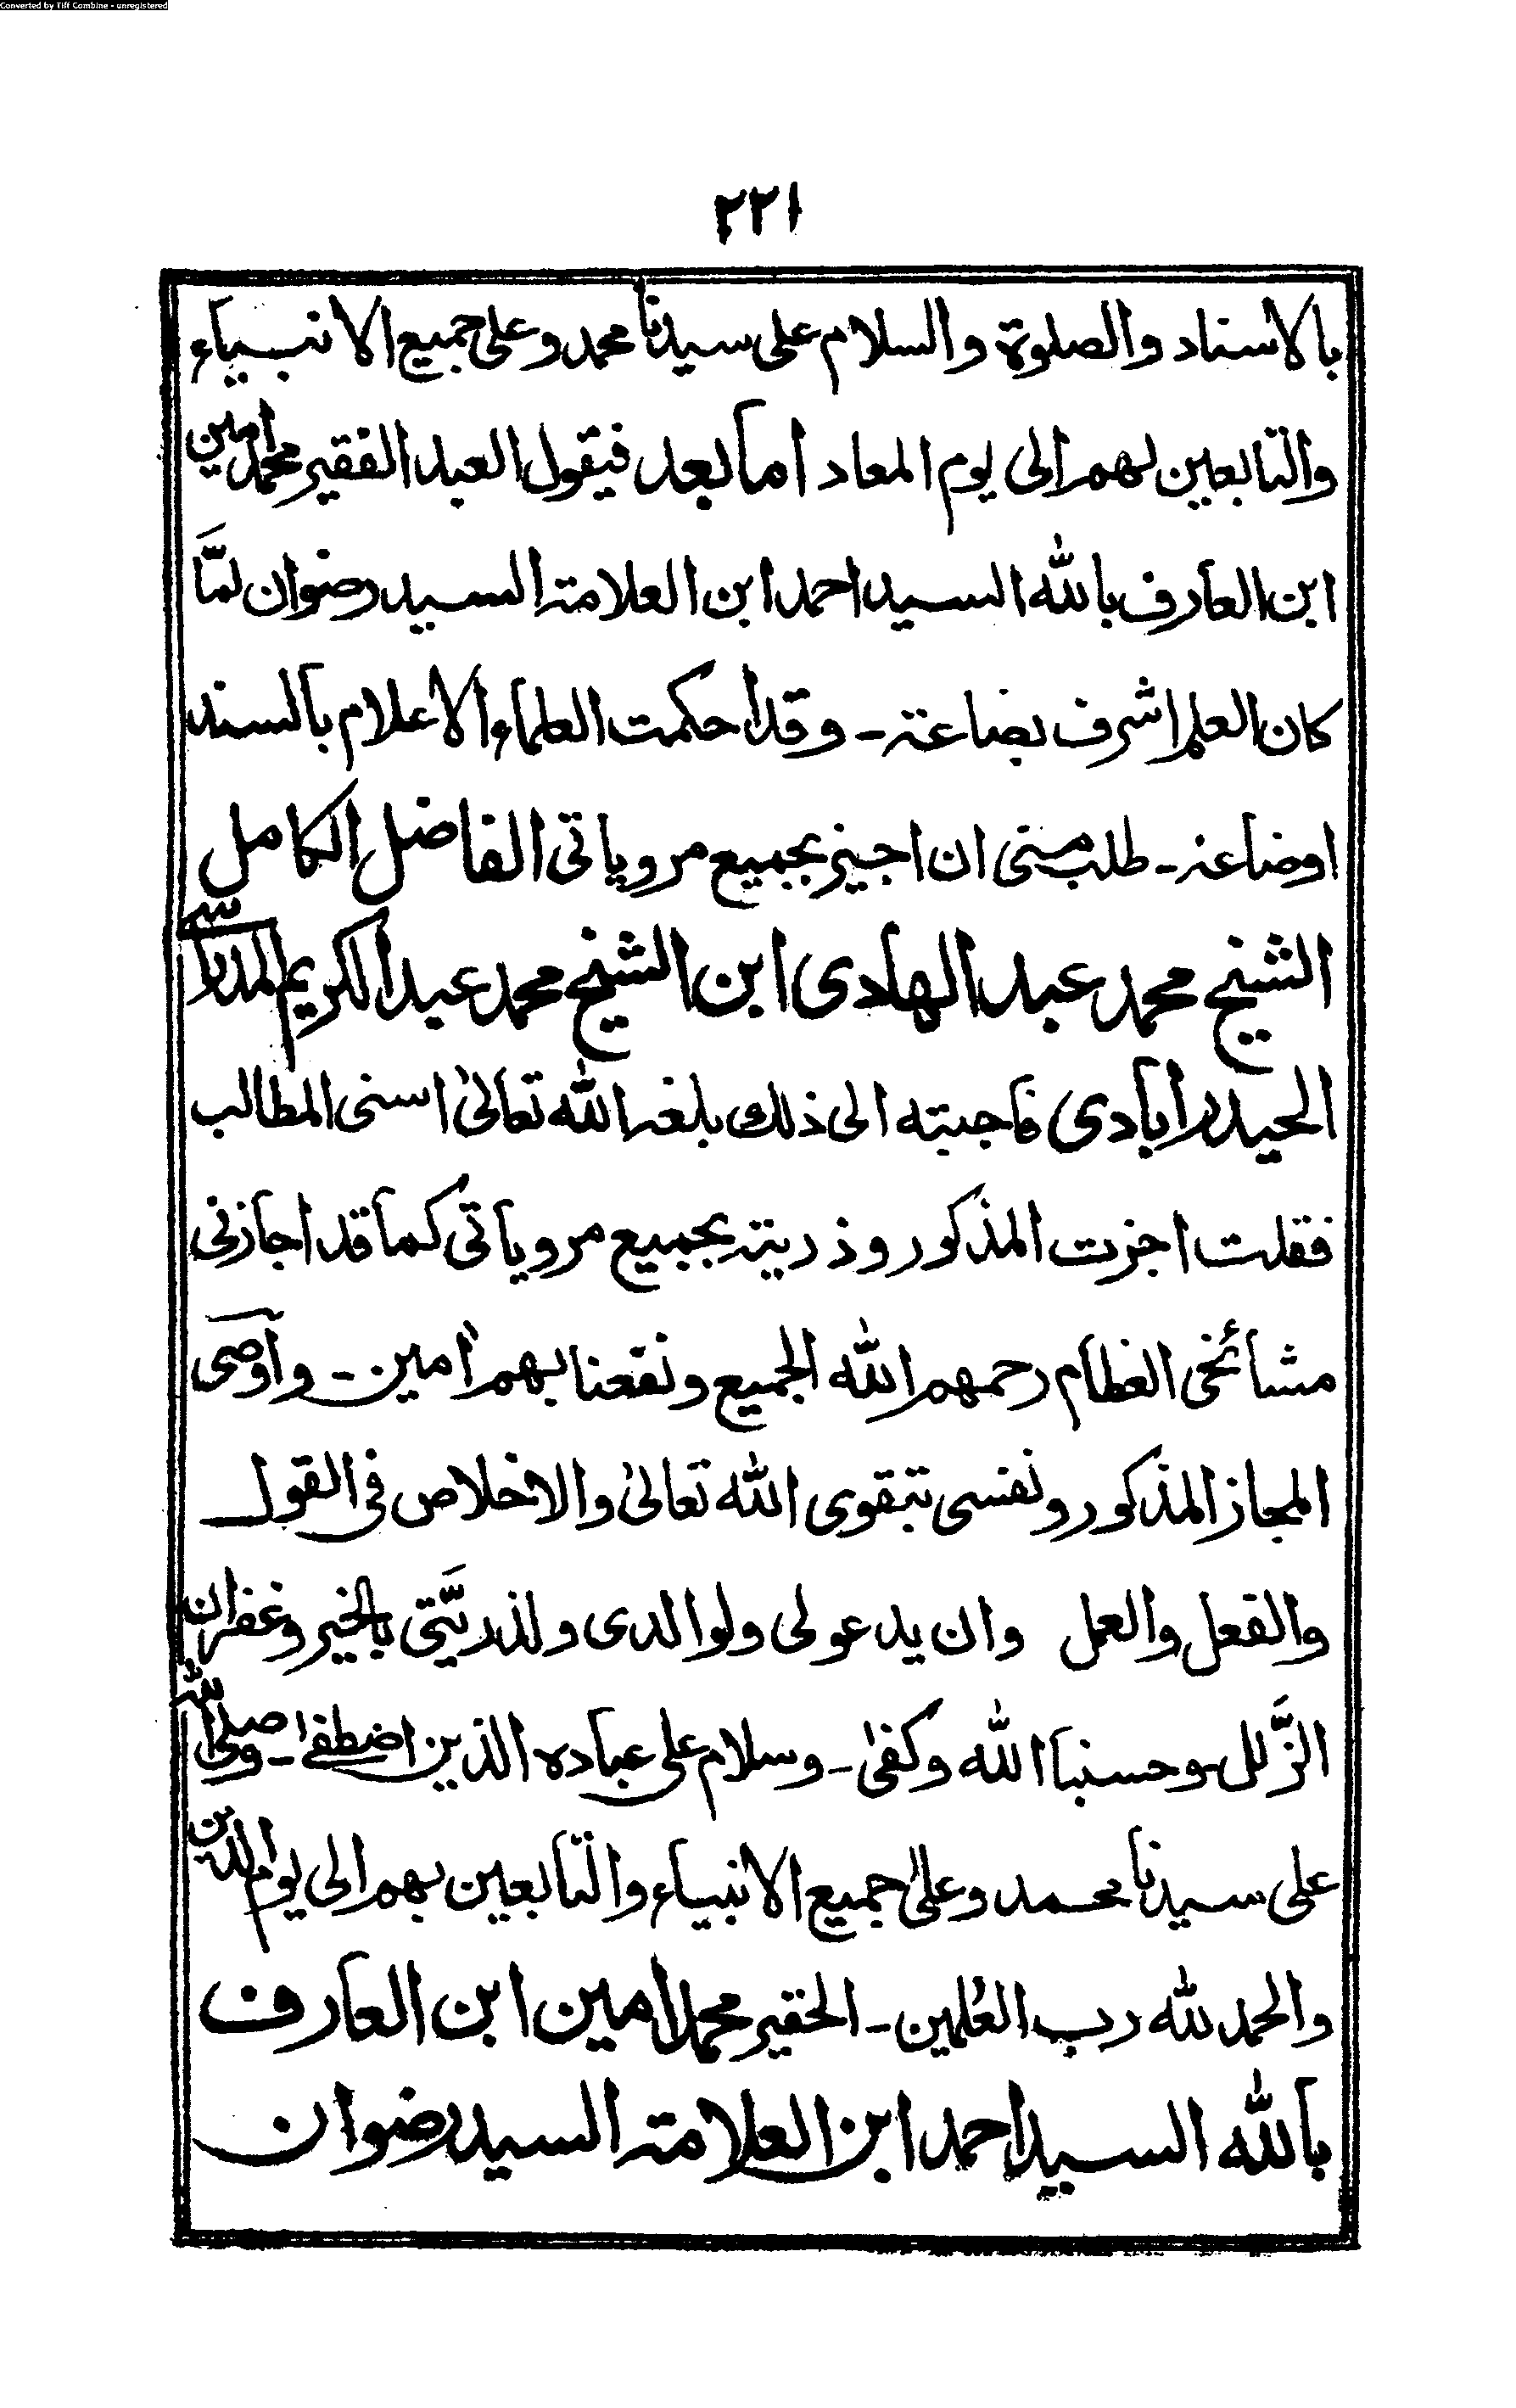 Converted by Tiff Combine - unregistered
٢٢١
بالاسناد والصلوة والسلام على سيدنا محمد وعلى جميع الانبياء
والتابعين لهم الى يوم المعاد اما بعد فيقول العبد الفقير محمد امين
ابن العارف بالله السيد احمد ابن العلامة السيد رضوان لمَّا
كان العلم اشرف بضاعة ـ وقد احكمت العلماء الاعلام بالسند
اوضاعه ـ طلب منى ان اجيز بجميع مروياتى الفاضل الكامل
الشيخ محمد عبد الهادى ابن الشيخ محمد عبد الكريم المدراسى
الحيدرابادى فاجبته الى ذلك بلغه الله تعالىٰ اسنى المطالب
فقلت اجزت المذكور وذريته بجميع مروياتى كما قد اجازنى
مشائخى العظام رحمهم الله الجميع ونفعنا بهم اٰمين ـ واوصى
المجاز المذكور ونفسى بتقوى الله تعالىٰ والاخلاص فى القول
والفعل والعمل وان يدعولى ولوالدى ولذريَّتى بالخير وغفران
الزَّلل وحسبنا الله وكفىٰ ـ وسلام على عباده الذين اصطفىٰ ـ وصلى الله
على سيدنا محمد وعلىٰ جميع الانبياء والتابعين بهم الى يوم الدين
والحمد لله رب العٰلمين ـ الحقير محمد امين ابن العارف
بالله السيد احمد ابن العلامة السيد رضوان